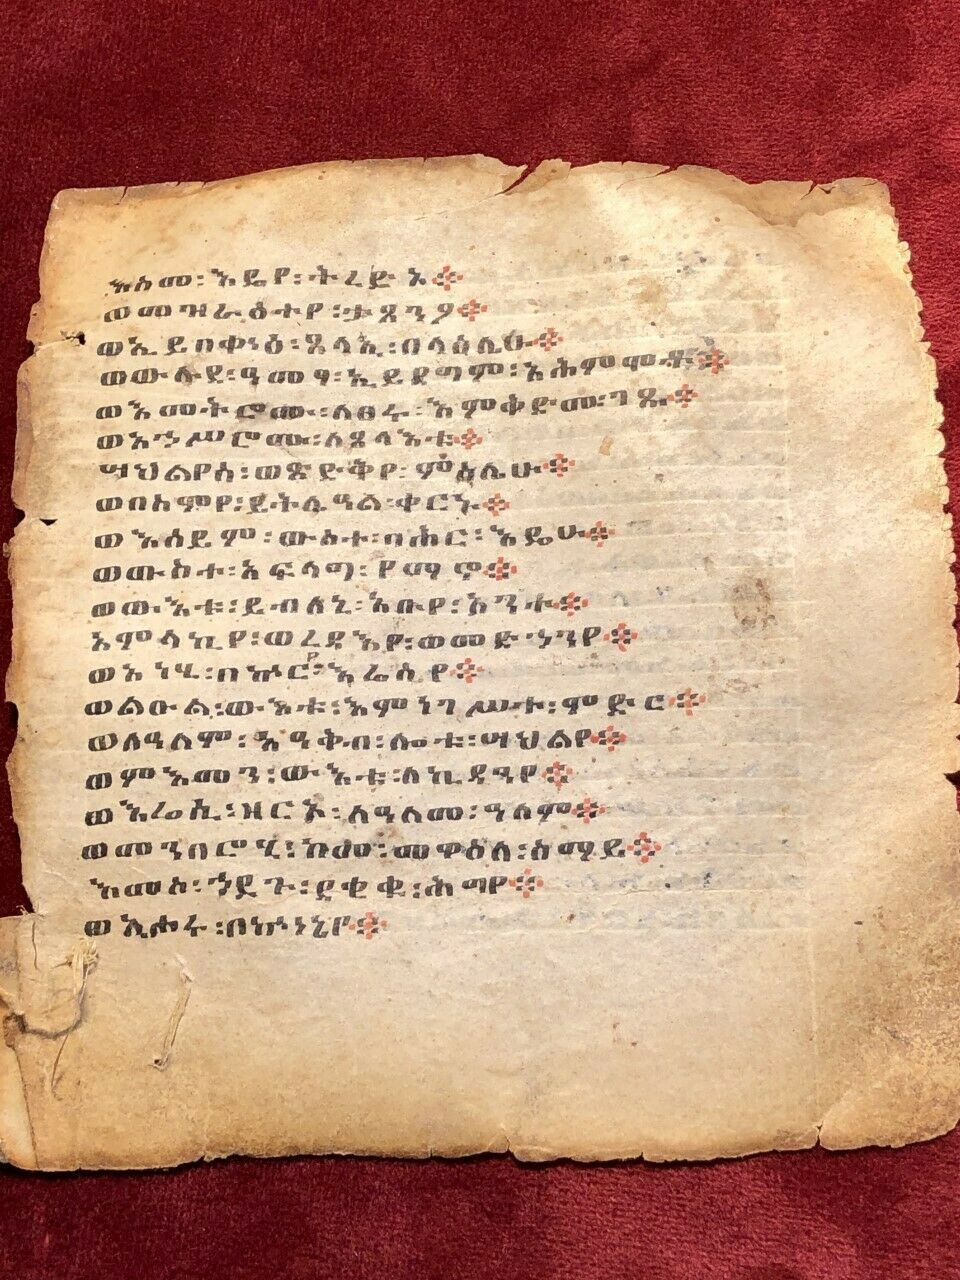 እስመ፡እዴየ፡ትረድኦ።
ወመዝራዕትየ፡ታጸንዖ።
ወኢይበቍዕ፡ጸላኢ፡በላዕሌሁ።
ወውሉደ፡ዓመፃ፡ኢይደግም፡አሕምሞቶ።
ወእመትሮሙ፡ለፀሩ፡እምቅድመ፡ገጹ።
ወአኀሥሮሙ፡ለጸላእቱ።
ሣህልየሰ፡ወጽድቅየ፡ምስሌሁ።
ወበስምየ፡ይትሌዓል፡ቀርኑ።
ወእሰይም፡ውስተ፡ባሕር፡እዴሁ።
ወውስተ፡አፍላግ፡የማኖ።
ወውእቱ፡ይብለኒ፡አቡየ፡አንተ።
አምላኪየ፡ወረዳእየ፡ወመድኀንየ።
ወአነሂ፡በኵርየ፡እሬስዮ።
ወልዑል፡ውእቱ፡እምነገሥተ፡ምድር።
ወለዓለም፡አዓቅብ፡ሎቱ፡ሣህልየ።
ወምእመን፡ውእቱ፡ለኪዳንየ።
ወእሬሲ፡ዘርኦ፡ለዓለመ፡ዓለም።
ወመንበሮሂ፡ከመ፡መዋዕለ፡ሰማይ።
እመሰ፡ኀደጉ፡ደቂቁ፡ሕግየ።
ወኢሖሩ፡በኵነኔየ።